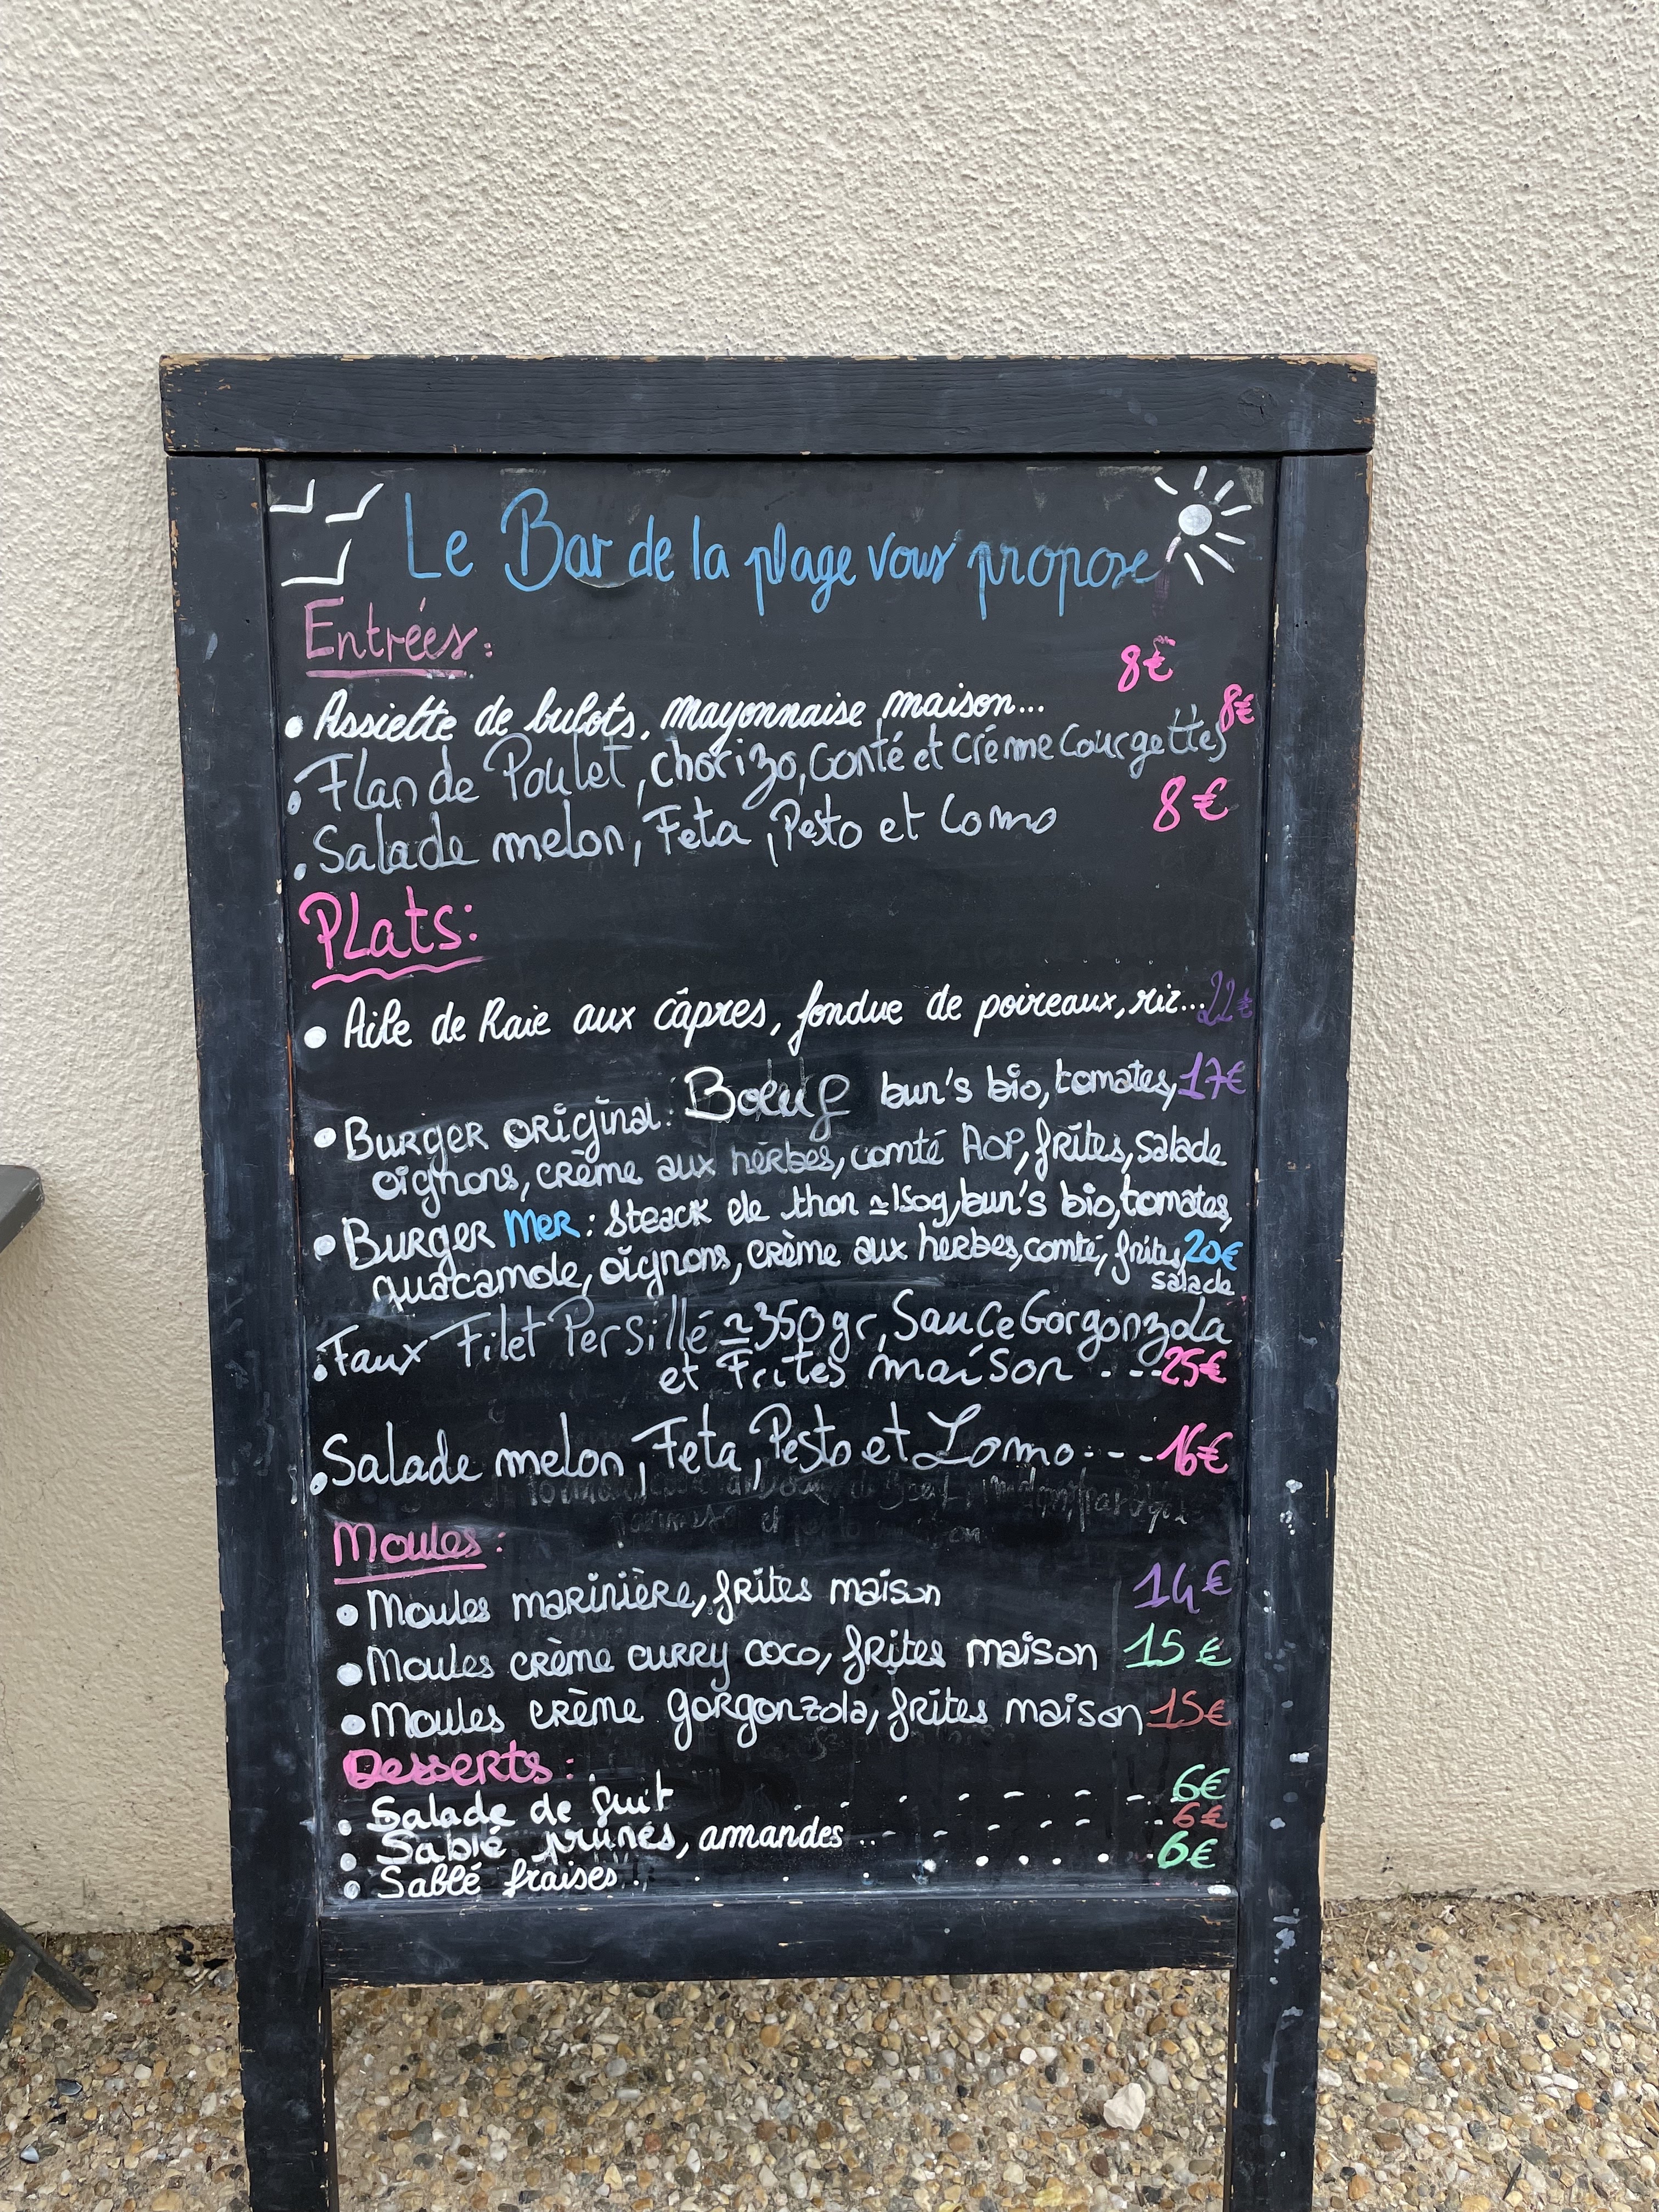 Le Bar de la plage vous propose
Entrées:
• Assiette de bulots, mayonnaise maison... 8€
• Flan de Poulet, chorizo, conté et créme Courgettes 8€
• Salade melon, Feta, Pesto et Lomo 8€
PLats:
• Aile de Raie aux câpres, fondue de poireaux, riz... 22€
• Burger original: Boeuf bun's bio, tomates, 17€
oignons, crème aux herbes, comté AOP, frites, salade
• Burger Mer: steack de thon ≃150g, bun's bio, tomates,
guacamole, oignons, crème aux herbes, comté, frites, 20€
salade
• Faux Filet Persillé ≃350gr, Sauce Gorgonzola
et Frites maison ...25€
• Salade melon, Feta, Pesto et Lomo...16€
Moules:
• Moules marinière, frites maison 14€
• Moules crème curry coco, frites maison 15€
• Moules crème gorgonzola, frites maison 15€
Desserts:
• Salade de fuit 6€
• Sablé prunes, amandes 6€
• Sablé fraises 6€